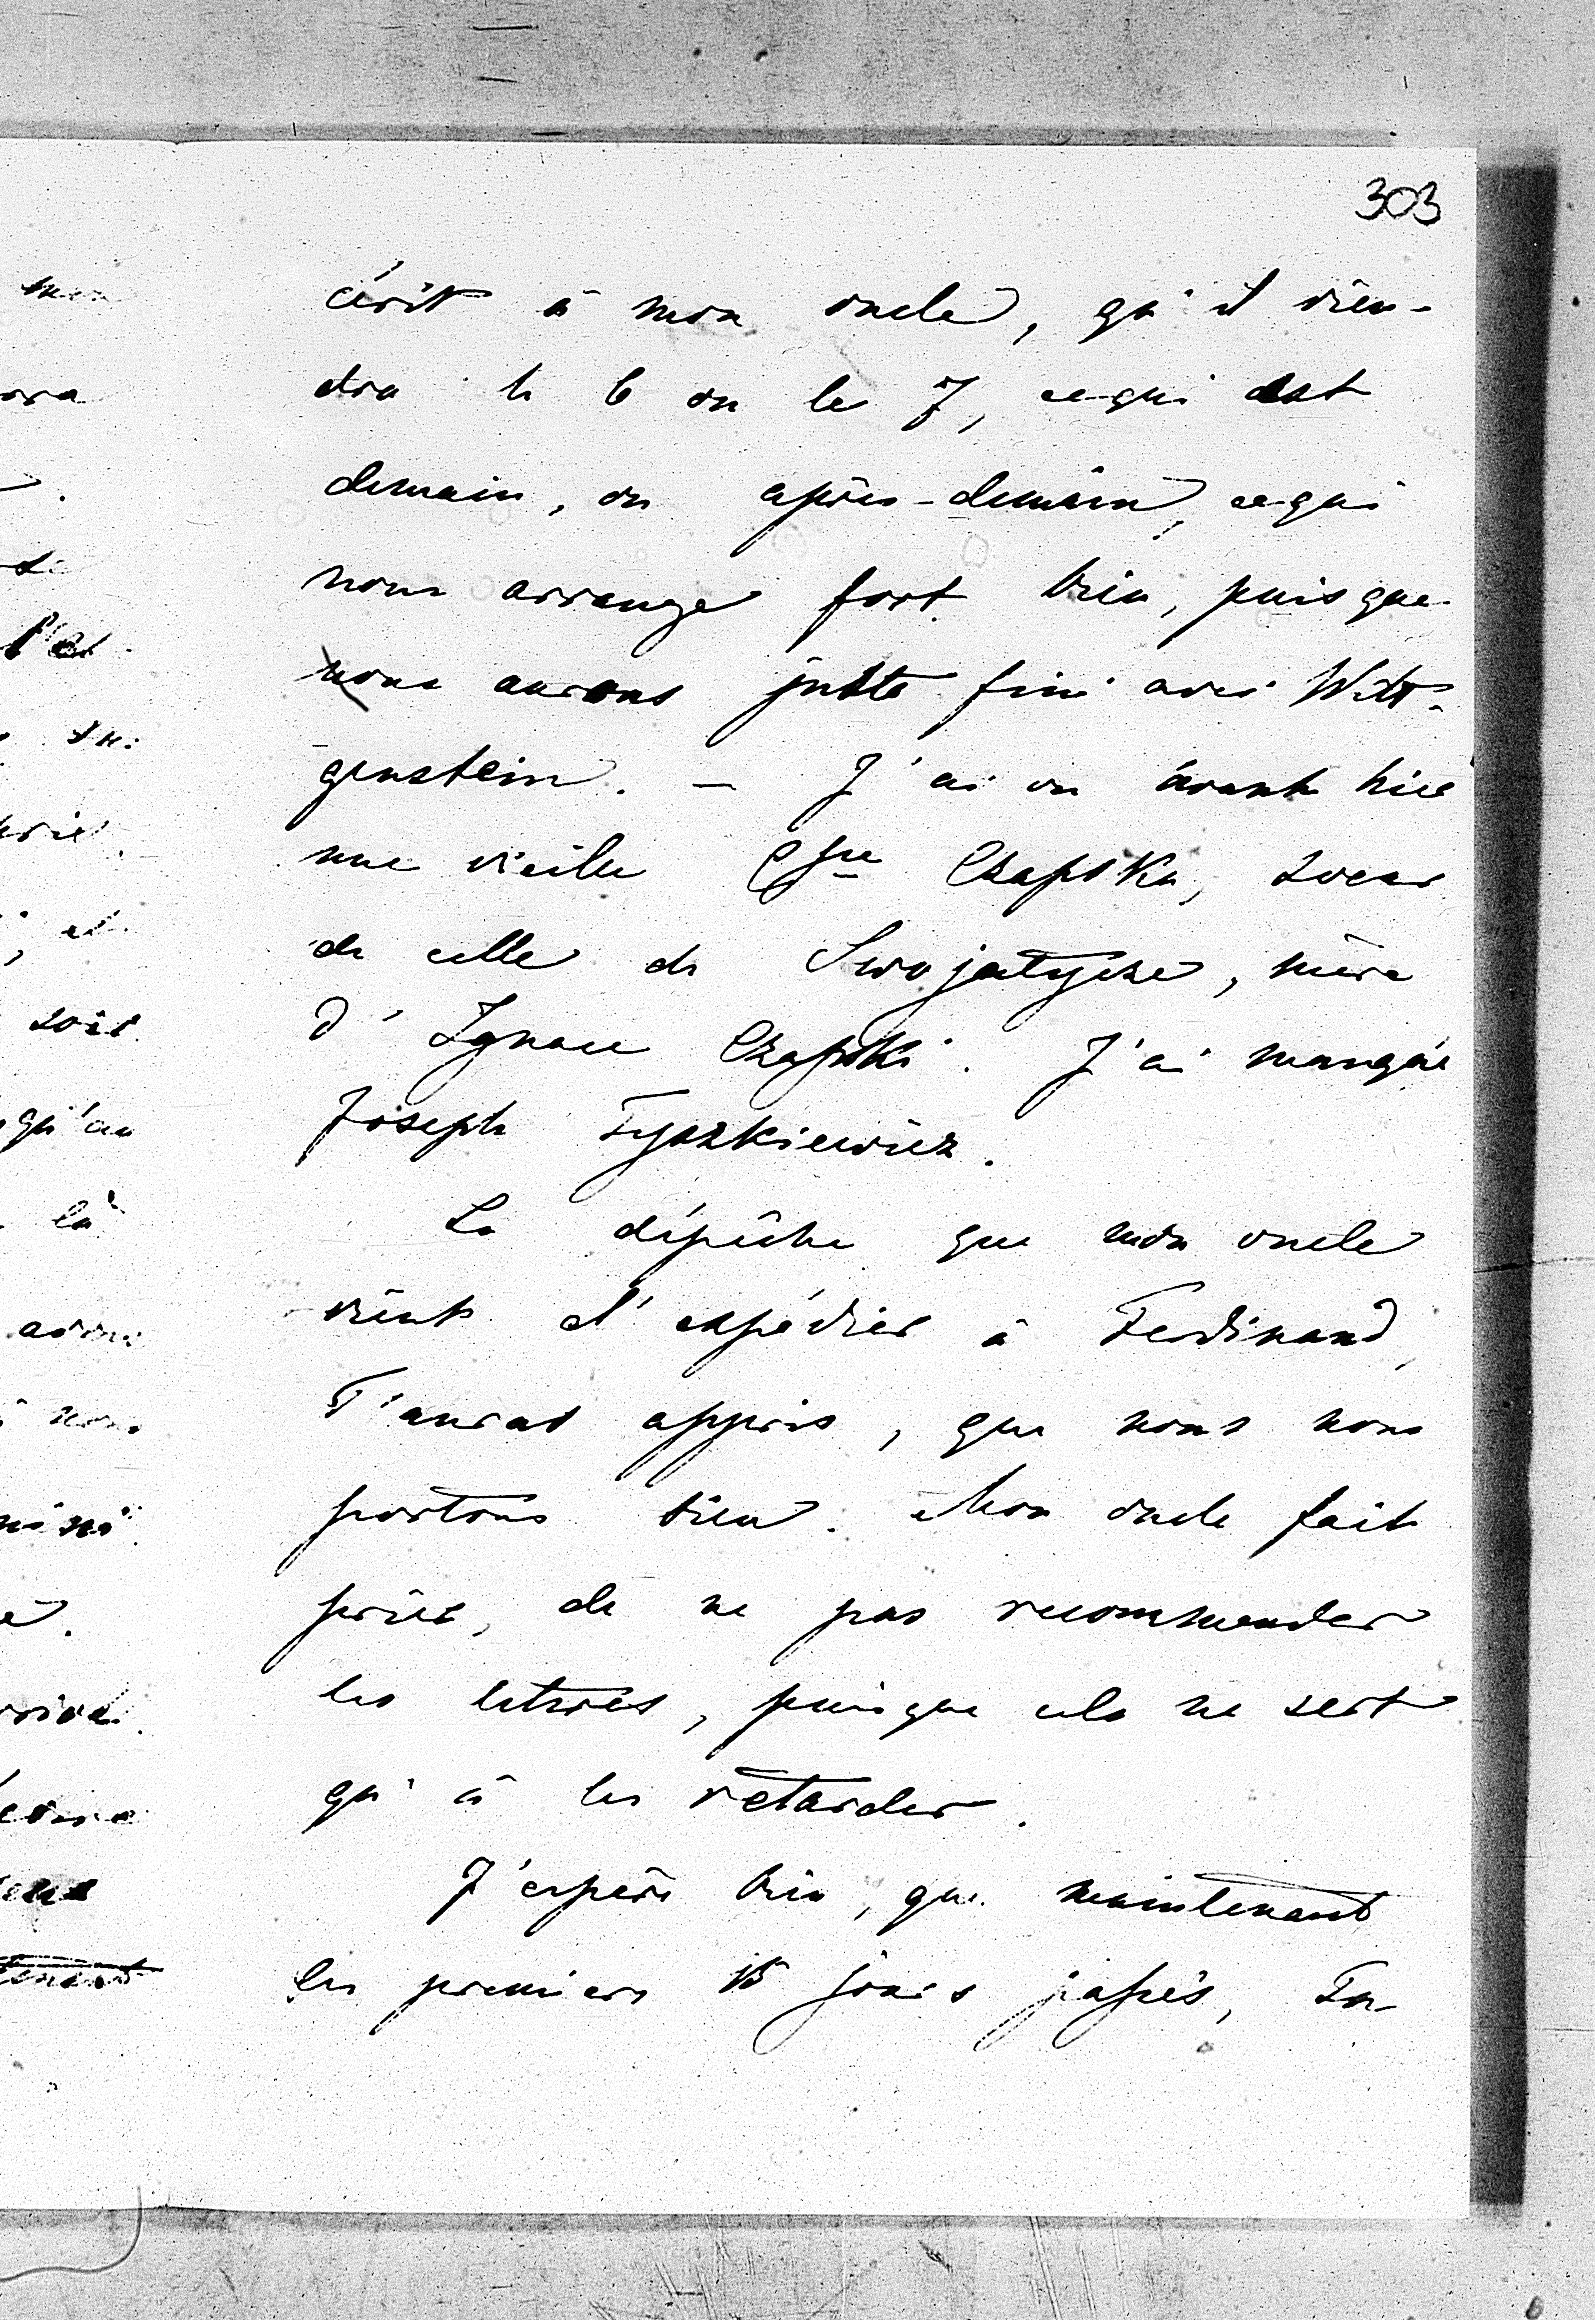 303
écrit à mon oncle, qu'il vien-
dra le 6 ou le 7, ce qui est
demain, ou après-demain, ce qui
nous arrange fort bien, puisque
nous aurons juste fini avec Witt-
genstein. — J'ai vu avant hier
une vieille Csse Czapska, soeur
de celle de Swojatycze, mère
d'Ignace Czapski. J'ai manqué
Joseph Tyszkiewicz.
La dépêche que mon oncle
vient d'expédier à Ferdinand,
T'auras appris, que nous nous
portons bien. Mon oncle fait
prier, de ne pas recommander
les lettres, puisque cela ne sert
qu'à les retarder.
J'espère bien, que maintenant
les premiers 15 jours passés, Tu